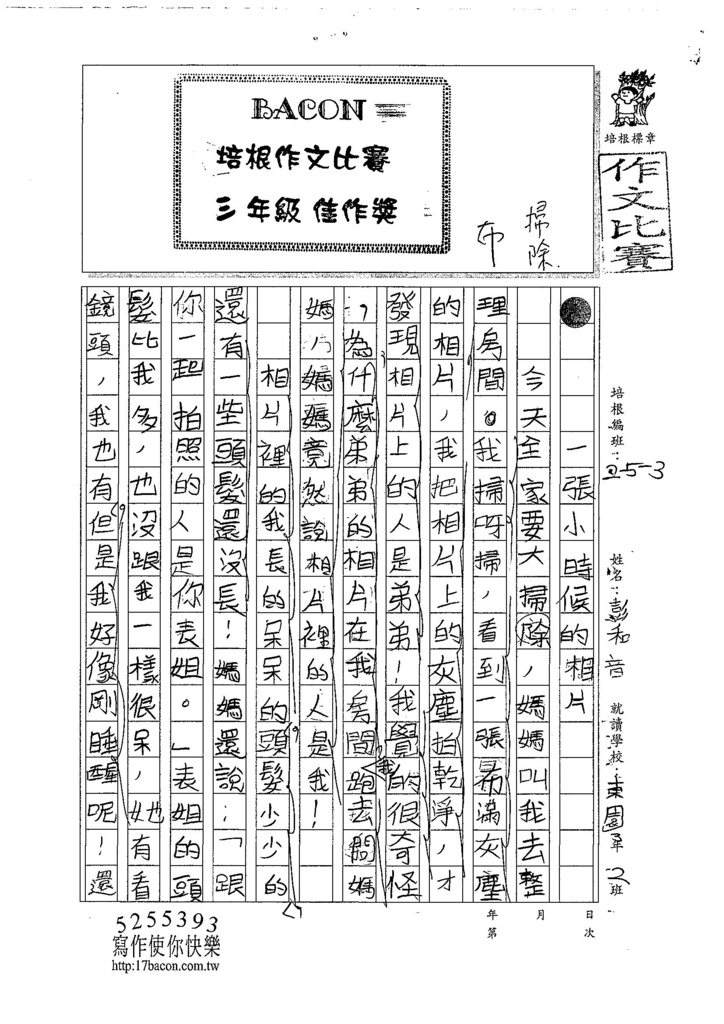 BACON
培根作文比賽
三年級佳作獎
掃除
布
培根標章
作文比賽
培根編班：25-3
姓名：彭和音
就讀學校：東園 年2班
一張小時候的相片
今天全家要大掃除，媽媽叫我去整
理房間。我掃呀掃，看到一張希滿灰塵
的相片，我把相片上的灰塵拍乾淨，才
發現相片上的人是弟弟！我覺的很奇怪
，為什麼弟弟的相片在我房間，我跑去問媽
媽，媽媽竟然說相片裡的人是我！
相片裡的我長的呆呆的，頭髮少少的
還有一些頭髮還沒長！媽媽還說：「跟
你一起拍照的人是你表姐。」表姐的頭
髮比我多，也沒跟我一樣很呆，她有看
鏡頭，我也有，但是我好像剛睡醒呢！還
年 月 日
第 次
5255393
寫作使你快樂
http:17bacon.com.tw